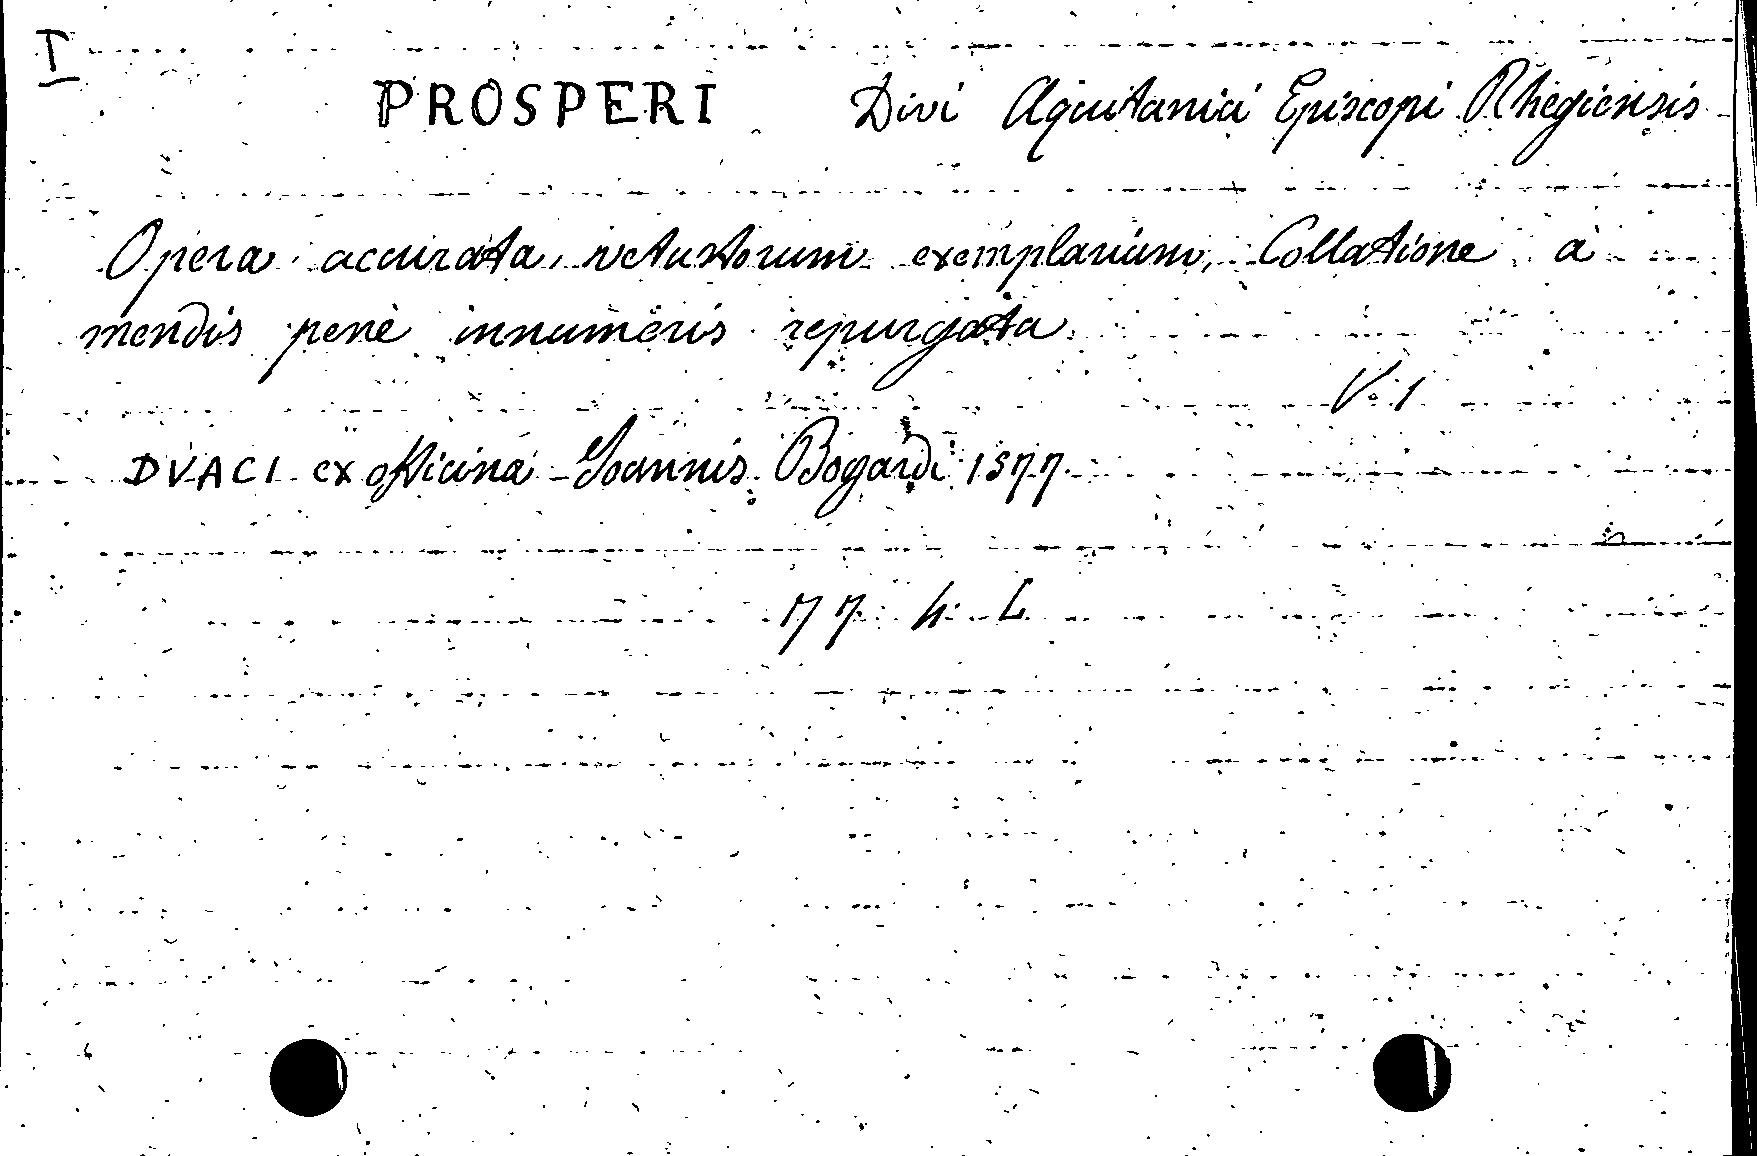 I
PROSPERI Divi Aquitanici Episcopi Rhegiensis
Opera accurata, vetustorum exemplarium, Collatione à
mendis penè innumeris repurgata
V. 1
DVACI ex officina Joannis Bogardi 1577.
77. 4. L